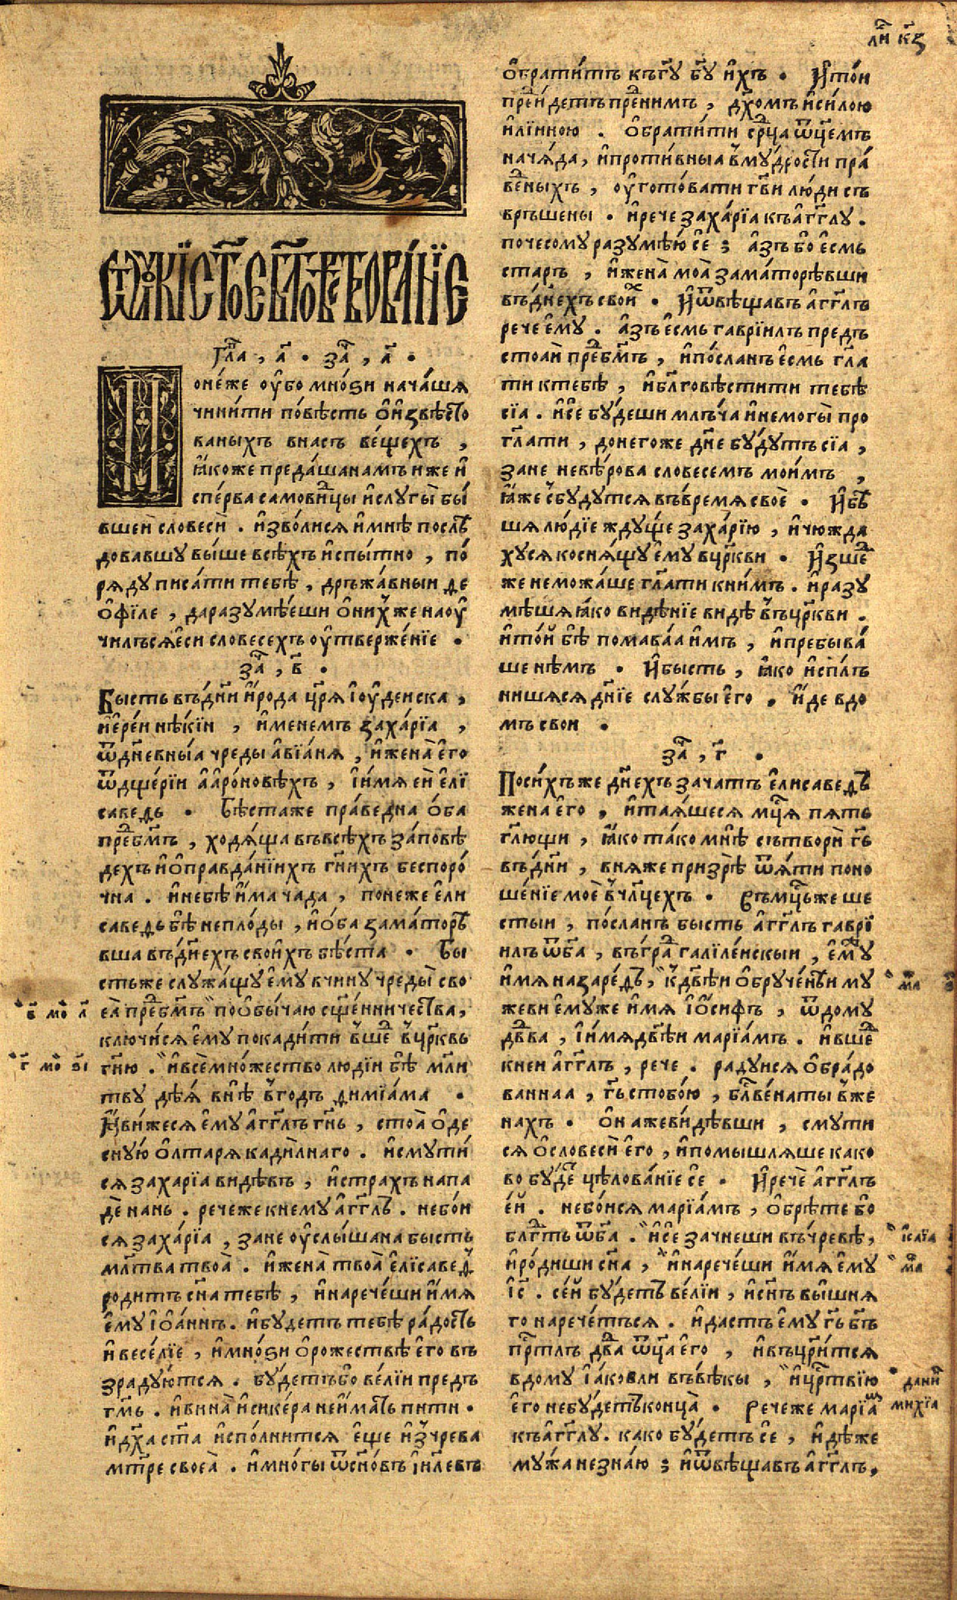 ли к҃з
ѿлꙋкї ст҃ое бл҃говѣствованїе
гла҃, а҃ . за҃, а҃ .
Понѐже ᲂу҆́бо мно́ѕи нача́шѧ
чини́ти по́вѣсть о҆и҆звѣсто
ваныхъ внасъ ве́щехъ ,
ꙗ҆́коже преда́ша намъ и҆же и҆
спе́рва самови́дцы и҆слꙋгы̀ бы́
вшеи словесѝ . и҆зво́лисѧ и҆мнѣ послѣ
довавшꙋ вы́ше всѣ́хъ и҆спы́тно , по́
рѧдꙋ писа́ти тебѣ , дръжа́вныи ѳе
о҆фїле , даразꙋмѣ́еши о҆ни́хже наоу҆
чилъсѧе҆си словесехъ оу҆твержѐнїе .
за҃, в҃ .
Бысть въд҃ни и҆рода ц҃рѧ і҆оуде́иска ,
и҆ере́и нѣ́кїи , и҆менемъ заха́рїа ,
ѿдне́вныа чреды а҆вїа́нѧ , и҆жена̀ е҆го
ѿдще́рїи а҆аро́новѣхъ , і҆и́мѧ еи е҆лї
саведь . Бѣ́стаже пра́ведна о҆ба
пре́дб҃гмъ , ходѧ́ща въвсѣ́хъ за́повѣ
дехъ и҆о҆правда́нїихъ г҃нихъ беспоро́
чна . и҆небѣ́ и҆́ма ча́да , понеже е҆ли
саведь бѣ̀ непло́ды , и҆о҆ба замато́рѣ
вша въд҃нехъ свои́хъ бѣ́ста . Бы
стьже слꙋжа́щꙋ е҆мꙋ вчинꙋ чреды̀ сво
еа̀ пре́дб҃гмъ поо҆бы́чаю сщ҃е́нничества ,
ключи́сѧ е҆мꙋ покади́ти вше́д вц҃рквь
г҃ню . и҆всѐ мно́жество людїи бѣ̀ мл҃и
твꙋ дѣ́ѧ внѣ̀ вго́дъ ѳимїа́ма .
Ꙗ҆ви́жесѧ е҆мꙋ а҆г҃глъ г҃нь , стоа̀ о҆де
снꙋю о҆лтарѧ кади́лнаго . и҆смꙋти́
сѧ захарїа ви́дѣвъ , и҆страхъ напа
дѐ нань . речеже кнемꙋ а҆г҃глъ . небо́и
сѧ заха́рїа , зане оу҆слы́шана бысть
мл҃тва твоа̀ . и҆жена̀ твоа̀ е҆лїсаведь
родитъ с҃на тебѣ , и҆нарече́ши и҆́мѧ
е҆мꙋ і҆о҆а́ннъ . и҆бꙋдетъ тебѣ ра́дость
и҆весе́лїе , и҆мно́ѕи о҆рожествѣ̀ е҆го въ
зра́дꙋютсѧ . бꙋ́детъбо ве́лїи предъ
г҃мъ . и҆вина̀ и҆сике́ра неи́мать пити .
и҆д҃ха ст҃а и҆спо́лнитсѧ е҆ще и҆ꙁчрева
мт҃ре своеа̀ . и҆мно́гы ѿс҃но́въ і҆и҃левъ
о҆братитъ кг҃ꙋ б҃гꙋ и҆́хъ . И҆то́и
пре́идетъ пре́днимъ , д҃хомъ и҆си́лою
и҆лїи́ною . о҆братити ср҃ца ѿц҃емъ
нача́да , и҆проти́вныа вмꙋ́дрости пра́
ведныхъ , оу҆гото́вати г҃ви лю́ди съ
връшены . и҆рече заха́рїа къа҆г҃глꙋ .
почесомꙋ разꙋмѣ́ю се ; а҆́зъ бо е҆смь
старъ , и҆жена̀ моа̀ зама́торѣвши
въд҃не́хъ свои́х . И҆ѿвѣща́въ а҆г҃глъ
рече е҆мꙋ . а҆́зъ е҆́смь гаврїи́лъ предъ
стоаи пре́дб҃гмъ , и҆по́сланъ е҆смь г҃ла
ти ктебѣ , и҆бл҃говѣстити тебѣ
сїа . и҆се бꙋ́деши млъча и҆немогы̀ про
г҃лати , донегоже д҃не бꙋдꙋтъ сїа ,
зане невѣ́рова словесемъ мои́мъ ,
ꙗ҆́же сбꙋдꙋтсѧ въвремѧ своѐ . И҆бѣ
шѧ лю́дїе ждꙋще заха́рїю , и҆чюжда
хꙋсѧ коснѧ́щꙋ е҆мꙋ вц҃ркви . И҆зше́д
же неможа́ше г҃лати кним . и҆разꙋ
мѣшѧ ꙗ҆́ко видѣ́нїе видѣ̀ вц҃ркви .
и҆то́и бѣ̀ помава́а и҆мъ , и҆пребыва́
ше нѣмъ . И҆бысть , ꙗ҆́ко и҆спо́лъ
нишѧсѧ д҃нїе слꙋ́жбы е҆го , и҆де вдо
мъ свои .
за҃, г҃ .
Поси́хъже д҃нехъ зачатъ е҆лисаведь
жена е҆го , и҆таѧ́шесѧ мц҃ѧ пѧть
г҃лющи , ꙗ҆́ко та́ко мнѣ сътвори г҃ь
въд҃ни , внѧже призрѣ̀ ѿѧ́ти поно
ше́нїе моѐ в҆чл҃цехъ . Въмц҃ьже ше
стыи , по́сланъ бысть а҆г҃глъ гаврї
и́лъ ѿб҃га , въгра́д галїле́искыи , е҆мꙋ
и҆́мѧ назаре́ѳъ , кд҃вѣи о҆брꙋче́нѣи мꙋ
жеви е҆мꙋже и҆́мѧ і҆о҆́сифъ , ѿдомꙋ
дв҃два , і҆и́мѧ д҃вѣи марїа́мъ . и҆вше́д
кнеи а҆г҃глъ , рече . ра́дꙋисѧ о҆бра́до
ваннаа , г҃ь стобо́ю , бл҃гве́на ты вже
нахъ . О҆на же ви́дѣвши , смꙋти
сѧ о҆словесѝ е҆го , и҆помышлѧше како
во бꙋ́де цѣлова́нїе се . И҆речѐ а҆г҃глъ
е҆и́ . небо́исѧ марїа́мъ , о҆брѣ́те бо
бл҃гть ѿб҃га . и҆се зачне́ши въчре́вѣ ,
и҆ро́диши с҃на , и҆нарече́ши и҆́мѧ е҆мꙋ
і҆с҃ . се́и бꙋ́детъ ве́лїи , и҆с҃нъ вы́шнѧ
го нарече́тьсѧ . и҆дастъ е҆мꙋ г҃ь б҃гъ
пр҃тлъ дв҃да ѿц҃а е҆го , и҆въц҃ри́тсѧ
вдомꙋ і҆а́ковли въвѣ́кы , и҆ц҃рствїю
е҆го небꙋ́детъ конца̀ . Речеже марїа́м
къа҆г҃глꙋ . како бꙋ́детъ се , и҆дѣ́же
мꙋ́жа незна́ю ; и҆ѿвѣща́въ а҆г҃глъ ,
в҃ мо л҃
г҃ мо ѕ҃і
ма
і҆са́їа
ма
дани
михїа